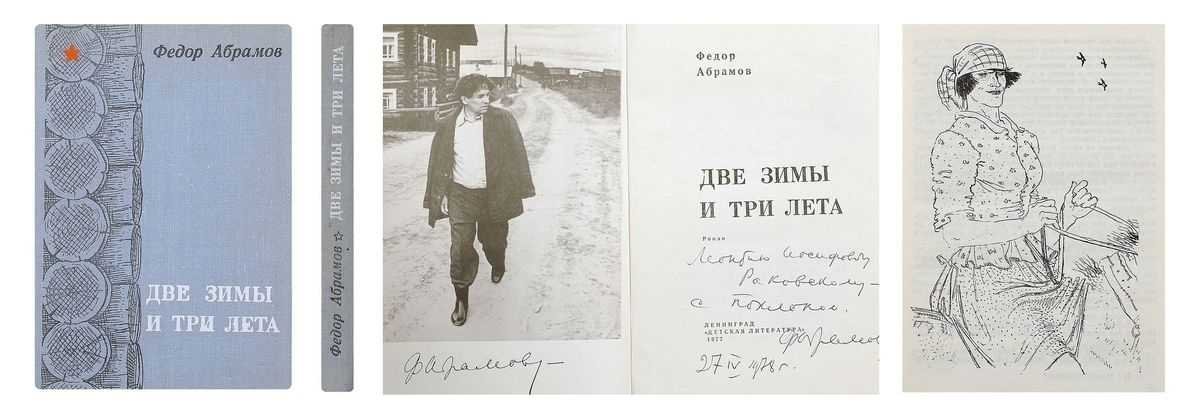 Федор Абрамов
ДВЕ ЗИМЫ
И ТРИ ЛЕТА
Федор Абрамов ☆ ДВЕ ЗИМЫ И ТРИ ЛЕТА
ФАбрамов
Федор
Абрамов
ДВЕ ЗИМЫ
И ТРИ ЛЕТА
Роман
Леонтию Иосифовичу
Раковскому –
с поклоном.
ЛЕНИНГРАД
«ДЕТСКАЯ ЛИТЕРАТУРА»
1977
ФАбрамов
27 IV 1978 г.